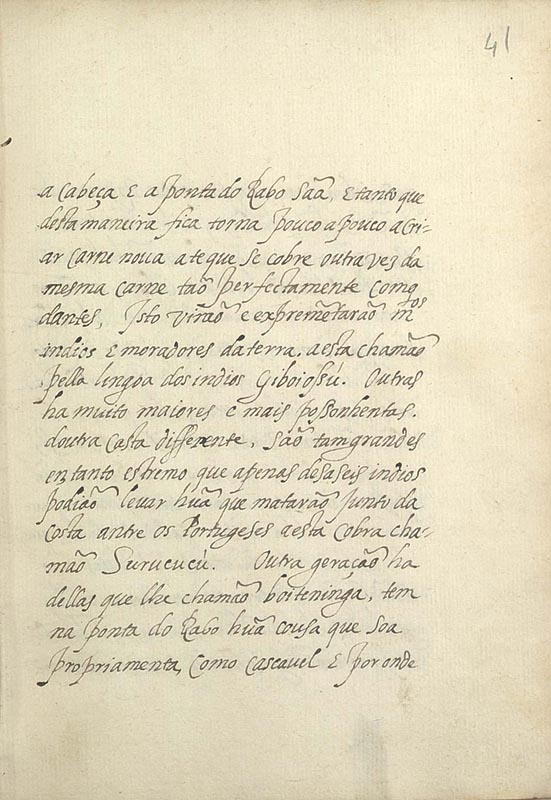 41
a Cabeça E a ponta do Rabo Saã, E tanto que
desta maneira fica torna pouco a pouco a Cri-
ar Carne noua ate que Se cobre outra vez da
mesma carne taõ perfectamente Como
dantes, Isto viraõ e expremẽtaraõ mtos
indios E moradores da terra. aesta chamaõ
pella lingoa dos indios Giboiosſú. Outras
ha muito maiores e mais poſſonhentas.
doutra Casta differente, Saõ tam grandes
em tanto estremo que apenas desaseis indios
podiaõ leuar huã que mataraõ Junto da
Costa antre os Portugeses aesta Cobra cha-
maõ Surucucú. Outra geraçaõ ha
dellas que lhe chamaõ boiteninga, tem
na ponta do Rabo huã cousa que Soa
propriamenta, Como Cascauel E por onde